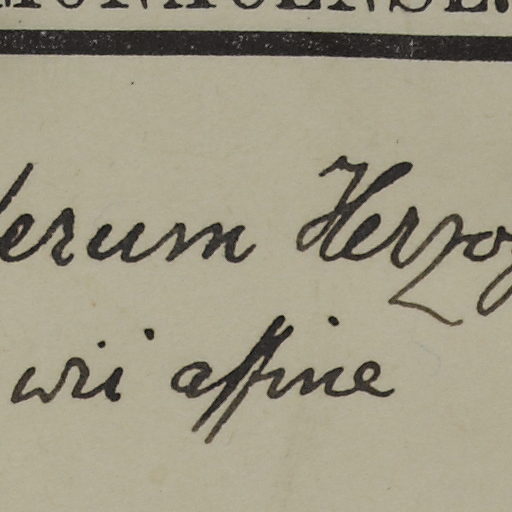 MONACENSE.
erum Herzog
wii affine